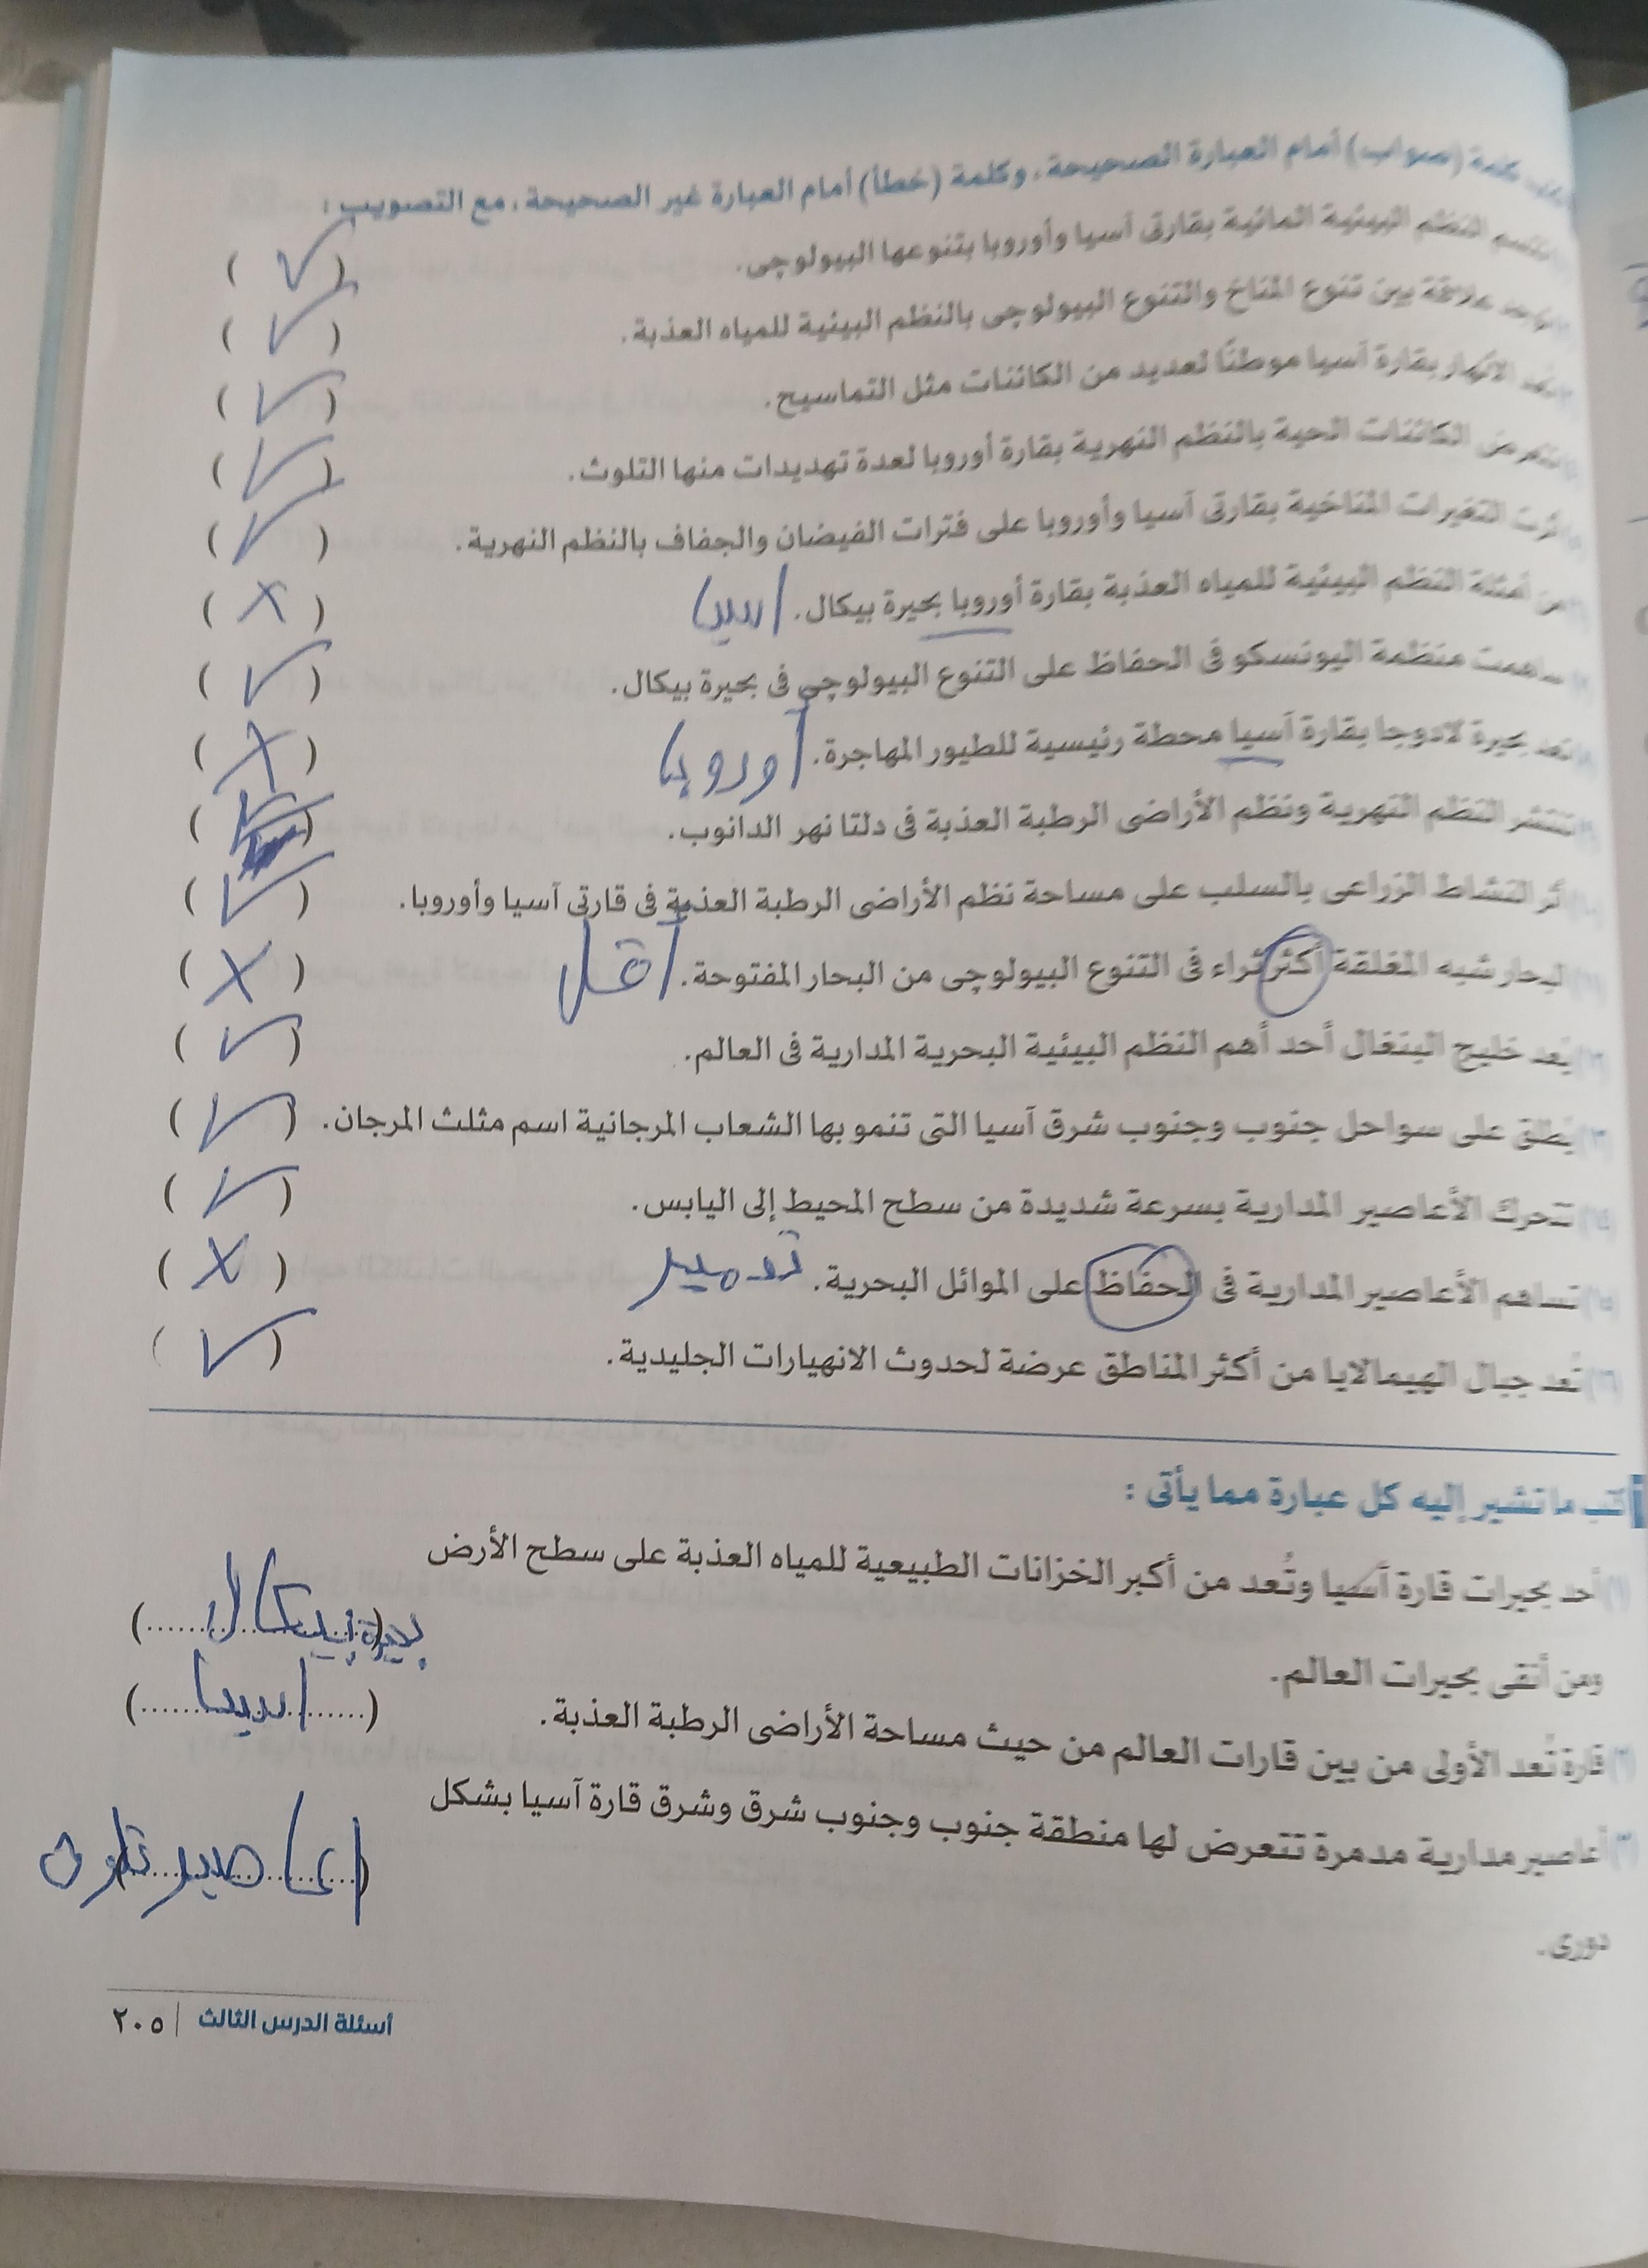 كلمة (صواب) أمام العبارة الصحيحة، وكلمة (خطأ) أمام العبارة غير الصحيحة، مع التصويب :
النظم البيئية المائية بقارتى آسيا وأوروبا بتنوعها البيولوجى. ( ✓ )
علاقة بين تنوع المناخ والتنوع البيولوجى بالنظم البيئية للمياه العذبة. ( ✓ )
الأنهار بقارة آسيا موطنًا لعديد من الكائنات مثل التماسيح. ( ✓ )
الكائنات الحية بالنظم النهرية بقارة أوروبا لعدة تهديدات منها التلوث. ( ✓ )
التغيرات المناخية بقارتى آسيا وأوروبا على فترات الفيضان والجفاف بالنظم النهرية. ( ✓ )
من أمثلة النظم البيئية للمياه العذبة بقارة أوروبا بحيرة بيكال. اسيا ( x )
ساهمت منظمة اليونسكو فى الحفاظ على التنوع البيولوجى فى بحيرة بيكال. ( ✓ )
تعد بحيرة لادوجا بقارة آسيا محطة رئيسية للطيور المهاجرة. أوروبا ( x )
تنتشر النظم النهرية ونظم الأراضى الرطبة العذبة فى دلتا نهر الدانوب. ( ✓ )
أثر النشاط الزراعى بالسلب على مساحة نظم الأراضى الرطبة العذبة فى قارتى آسيا وأوروبا. ( ✓ )
البحار شبه المغلقة أكثر ثراء فى التنوع البيولوجى من البحار المفتوحة. أقل ( x )
يُعد خليج البنغال أحد أهم النظم البيئية البحرية المدارية فى العالم. ( ✓ )
يُطلق على سواحل جنوب وجنوب شرق آسيا التى تنمو بها الشعاب المرجانية اسم مثلث المرجان. ( ✓ )
تتحرك الأعاصير المدارية بسرعة شديدة من سطح المحيط إلى اليابس. ( ✓ )
تساهم الأعاصير المدارية فى الحفاظ على الموائل البحرية. تدمير ( x )
تُعد جبال الهيمالايا من أكثر المناطق عرضة لحدوث الانهيارات الجليدية. ( ✓ )
اكتب ما تشير إليه كل عبارة مما يأتى :
(١) أحد بحيرات قارة آسيا وتُعد من أكبر الخزانات الطبيعية للمياه العذبة على سطح الأرض
ومن أنقى بحيرات العالم. (بحيرة بيكال)
(٢) قارة تُعد الأولى من بين قارات العالم من حيث مساحة الأراضى الرطبة العذبة. (اسيا)
(٣) أعاصير مدارية مدمرة تتعرض لها منطقة جنوب وجنوب شرق وشرق قارة آسيا بشكل
دورى. (اعاصير)
أسئلة الدرس الثالث | ٢٠٥